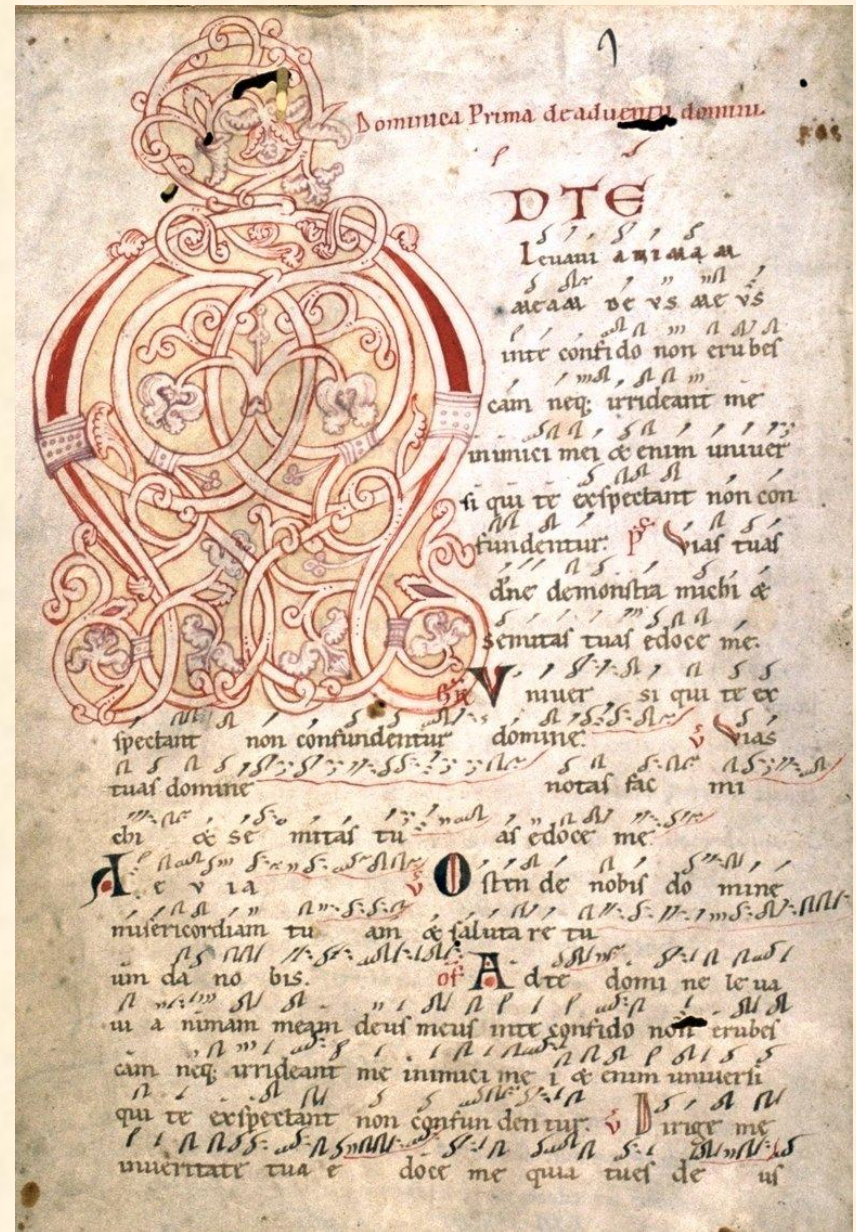 Dominica Prima de aduentu domini.
DTE
Levavi ANIMAM
MEAM DEVS MEVS
inte confido non erubes
cam neq; irrideant me
inimici mei & enim univer
si qui te exspectant non con
fundentur. ps Vias tuas
dne demonstra michi &
semitas tuas edoce me.
Vniver si qui te ex
spectant non confundentur domine. v Vias
tuas domine notas fac mi
chi & se mitas tu as edoce me.
A e v i a v Osten de nobis do mine
misericordiam tu am & saluta re tu
um da no bis. of Adte domi ne le va
vi a nimam meam deus meus inte confido non erubes
cam neq; irrideant me inimici me i & enim universi
qui te exspectant non confun den tur. v Dirige me
inveritate tua e doce me quia tues de us